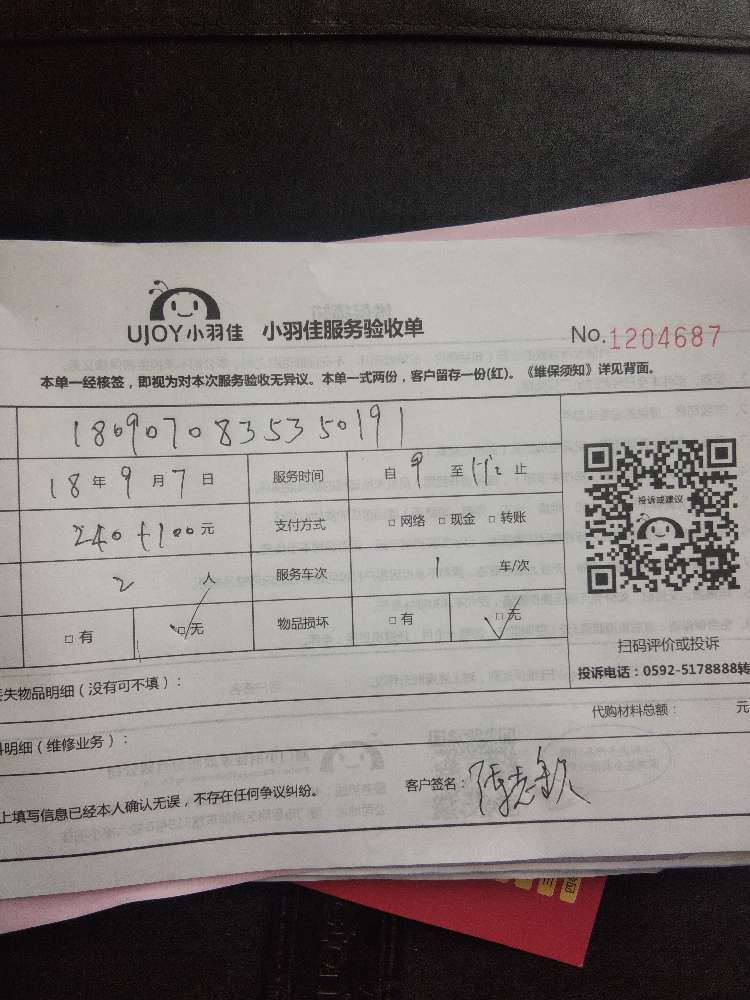 UJOY小羽佳 小羽佳服务验收单 No.1204687
本单一经核签，即视为对本次服务验收无异议。本单一式两份，客户留存一份(红)。《维保须知》详见背面。
18090708353550191
18年9月7日 服务时间 自9至 止
240+100元 支付方式 □网络 □现金 □转账
2人 服务车次 1车/次
□有 □无 物品损坏 □有 □无
投诉或建议
扫码评价或投诉
投诉电话：0592-5178888转
失物品明细（没有可不填）：
代购材料总额： 元
明细（维修业务）：
上填写信息已经本人确认无误，不存在任何争议纠纷。 客户签名：